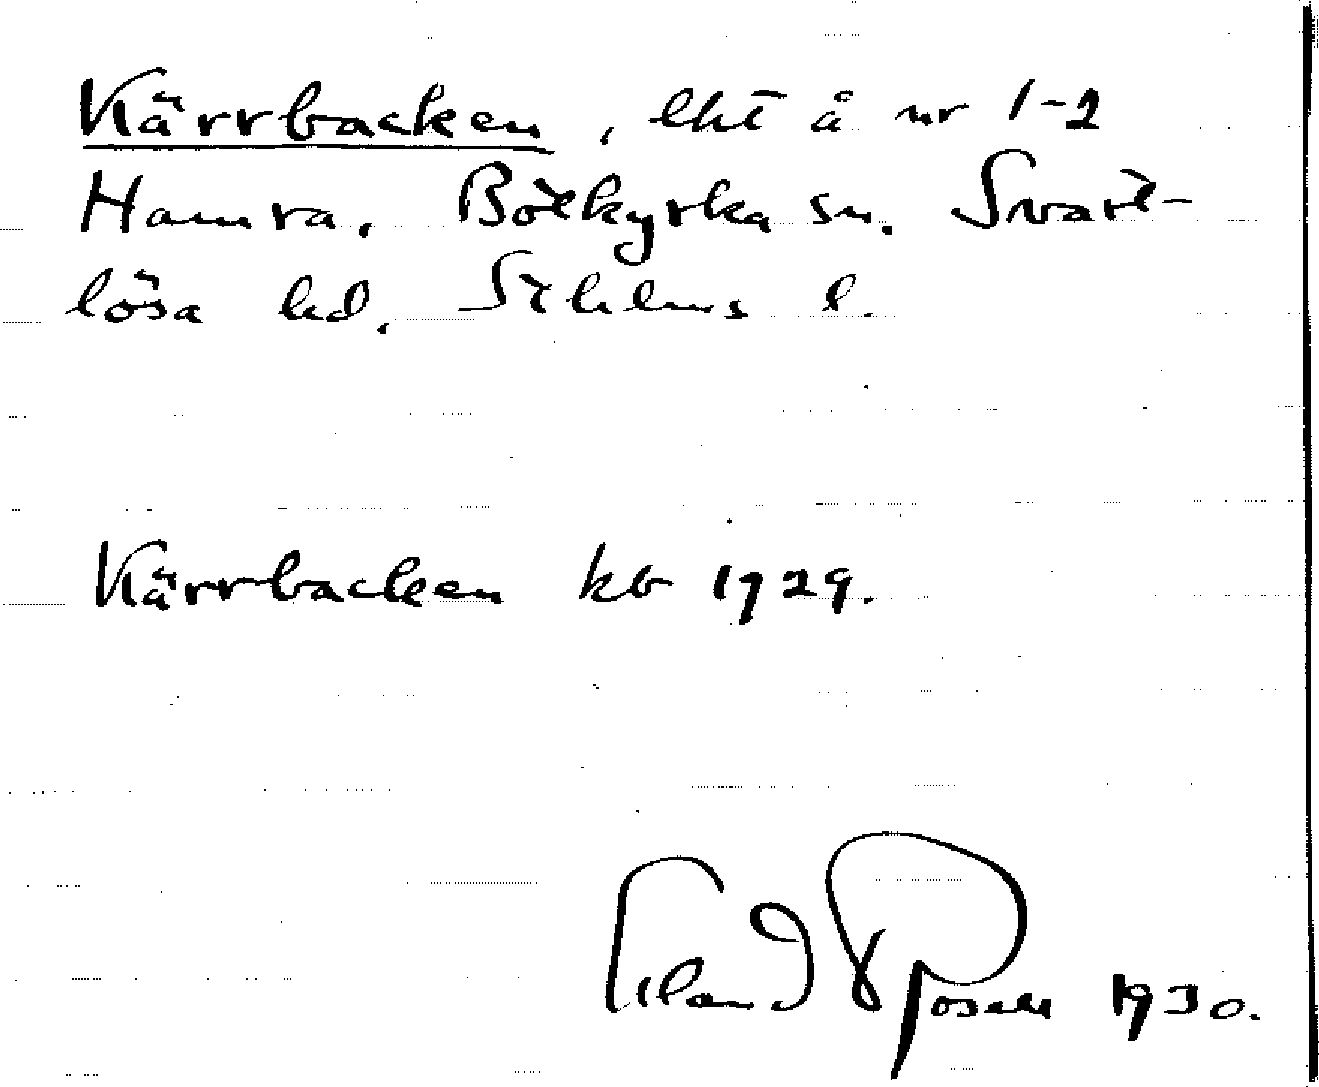 Kärrbacken, lht å nr 1-2
Hamra, Botkyrka sn. Svart-
lösa hd, Sthlms l.
Kärrbacken kb 1929.
Erland Rosell 1930.